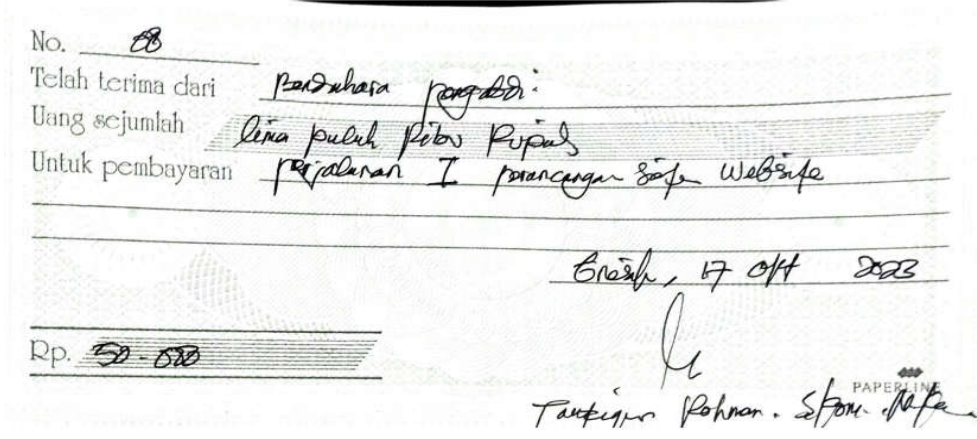 No. 08
Telah terima dari Bendahara pengabdi.
Uang sejumlah lima puluh Ribu Rupiah
Untuk pembayaran perjalanan I perancangan Website
Gresik, 17 Okt 2023
Rp. 50-000
PAPERLINE
Rohman. S.Kom.